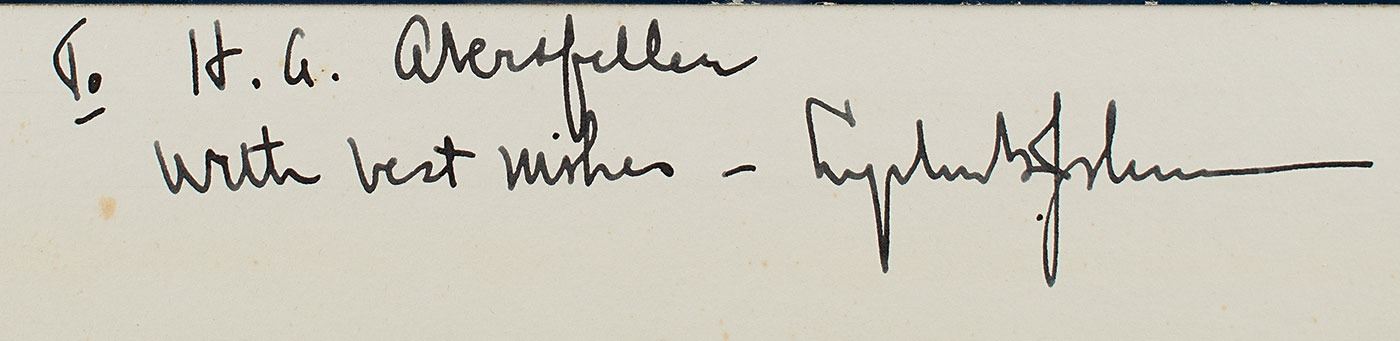 To H. G. Abersfeller
with best wishes – Lyndon B. Johnson